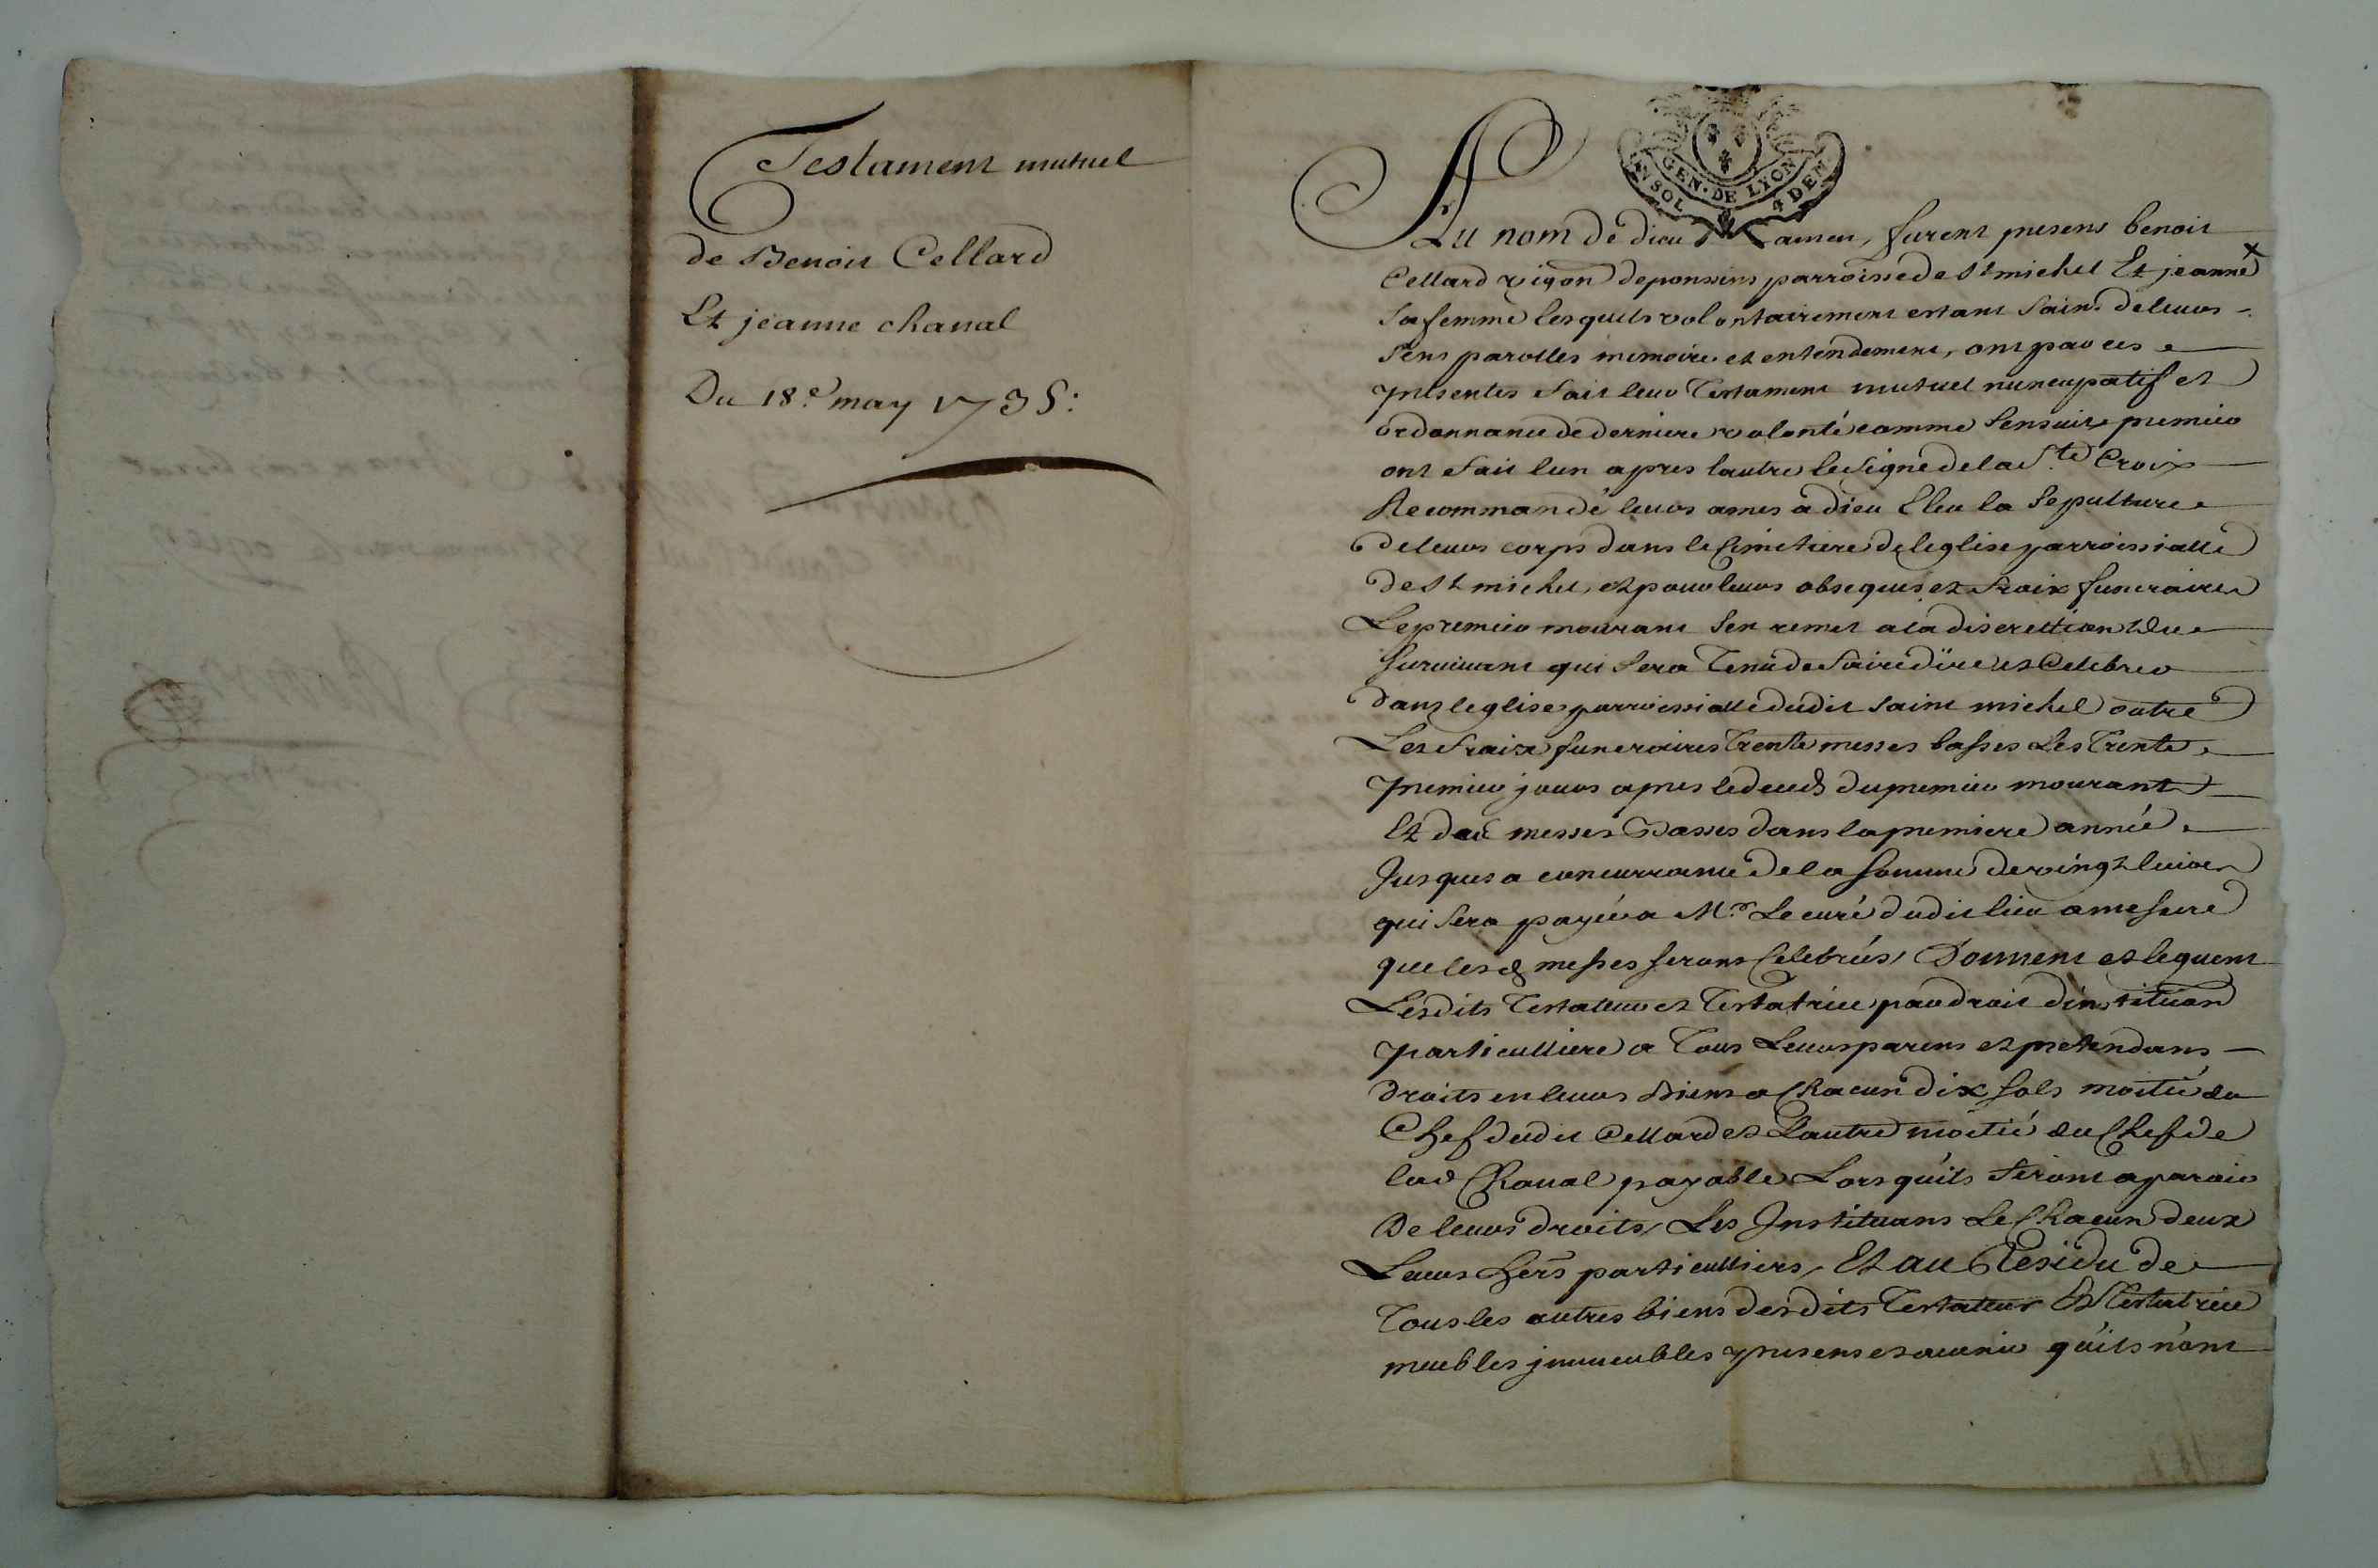 Testament mutuel
de Benoit Cellard
Et jeanne chanal
Du 18.e may 1735:
GEN. DE LYON
UN SOL 4 DEN
Au nom de dieu amen, furent presens benoit
Cellard vigon deponsins parroisse de St michel Et jeanne x
sa femme lesquels volontairement estant sains de leurs
sens parolles memoire et entendement, ont par ces
presentes fait leur Testament mutuel nuncupatif et
ordonnance de derniere volonté comme sensuit, premier
ont fait lun apres lautre le signe de la S.te Croix
Recommandé leurs ames a dieu Eleu la sepulture
de leurs corps dans le Cimetiere de leglise parroissialle
de St michel, et pour leurs obseques et fraix funeraires
Le premier mourant sen remet a la discrettion du
survivant qui sera Tenu de faire dire et Celebrer
dans leglise parroissialle dudit saint michel outre
Les fraix funeraires Trente messes basses Les Trente
premier jours apres le deced du premier mourant
Et des messes Basses dans la premiere année
Jusques a concurrance de la somme de vingt livres
qui sera payée a Mr. Le curé dudit lieu a mesure
que lesd messes seront Celebrées, Donnent et leguent
Lesdits Testateur et Testatrice par droit dinstituon
particulliere a Tous Leurs parens et pretendans
droits en leurs biens a Chacun dix sols moitié du
Chef dudit Cellard et Lautre moitié du Chef de
lad Chanal payable Lorsquils seront aparoir
De leurs droits, Les Instituans Le Chacun deux
Leurs hers particulliers, Et au Residu de
Tous les autres biens desdits Testateur Et Testatrice
meubles jmmeubles presens et avenir quils nont